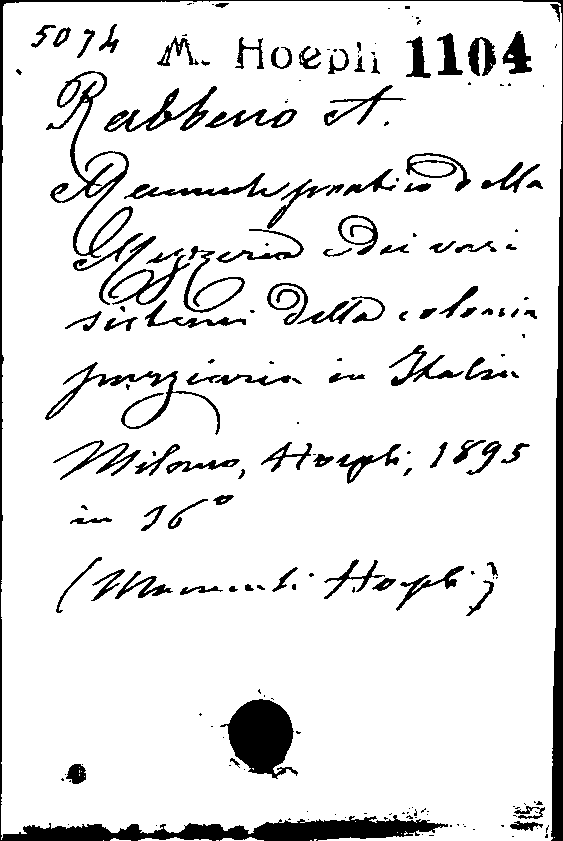 5074 M. Hoepli 1104
Rabbeno A.
Manuale pratico della
Mezzeria e dei vari
sistemi della colonia
parziaria in Italia
Milano, Hoepli, 1895
in 16°
(Manuali Hoepli)